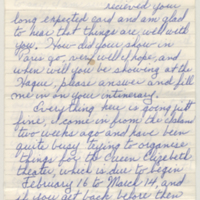 received your
long expected card and am glad
to hear that things are well with
you. How did your show in
Paris go, very well I hope, and
when will you be showing at the
Hague, please answer and fill
me in on your intinerary.
Everything here is going just
fine, I came in from the
two weeks ago and have been
quite busy trying to organise
things for the Queen Elizabeth
theater, which is due to begin
February 16 to March 14, and
if you get back before then